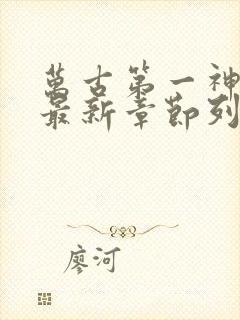 萬古第一神
最新章節列
廖河